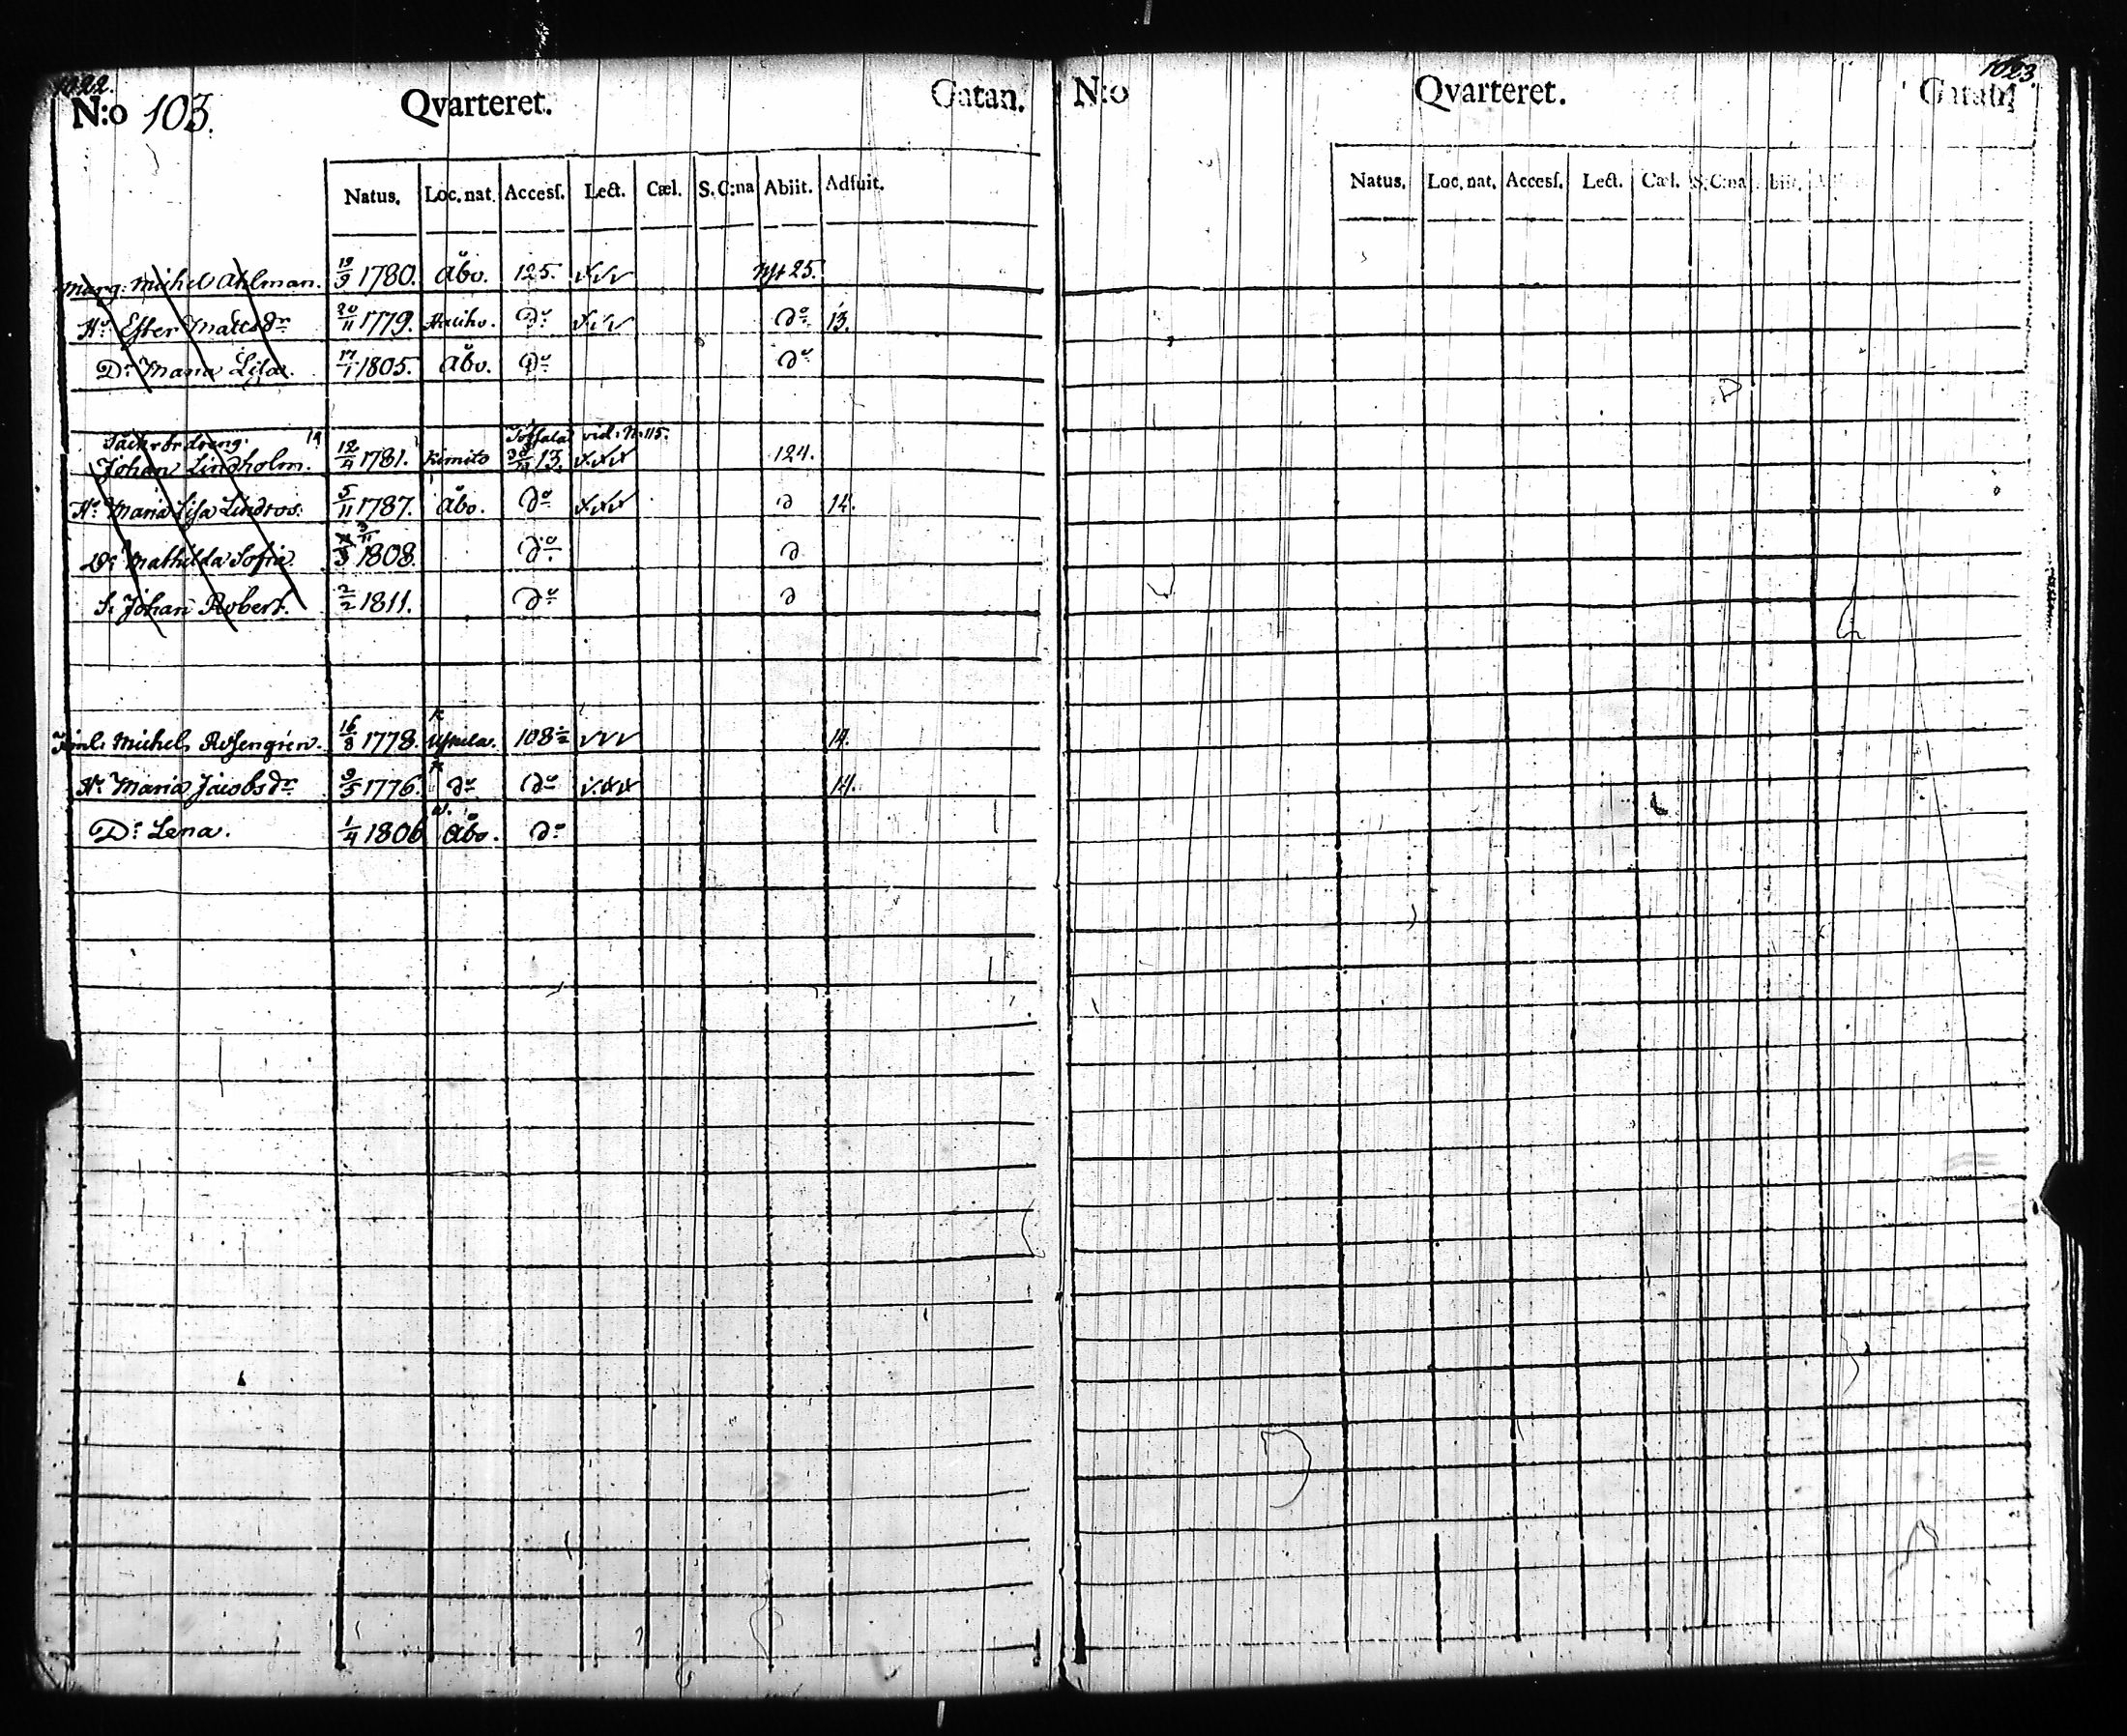 1022.
N:o 103. Qvarteret. Gatan.
Natus. Loc. nat. Access. Lect. Cæl. S. C:na Abiit. Adsuit.
Marg: Michel Ahlman. 19/9 1780. Åbo. 125. 25.
Hu Ester Mattsdr 20/11 1779. Hauho. do do 13.
Dr Maria Lisa. 17/1 1805. Åbo. do do
vid. N:115.
Johan Lindholm. 12/4 1781. Kimito 13. 124.
Hu Maria Lisa Lindros. 5/11 1787. Åbo. do d 14.
Dr Mathilda Sofia 3/11 1808. do d
S. Johan Robert. 2/2 1811. do d
Michel Rosengrén. 16/8 1778. 108 1/2 14.
Hu Maria Jacobsdr 9/5 1776. do do 14.
Dr Lena. 1/4 1806 Åbo. do
1023.
N:o Qvarteret. Gatan
Natus. Loc. nat. Access. Lect. Cæl. S. C:na